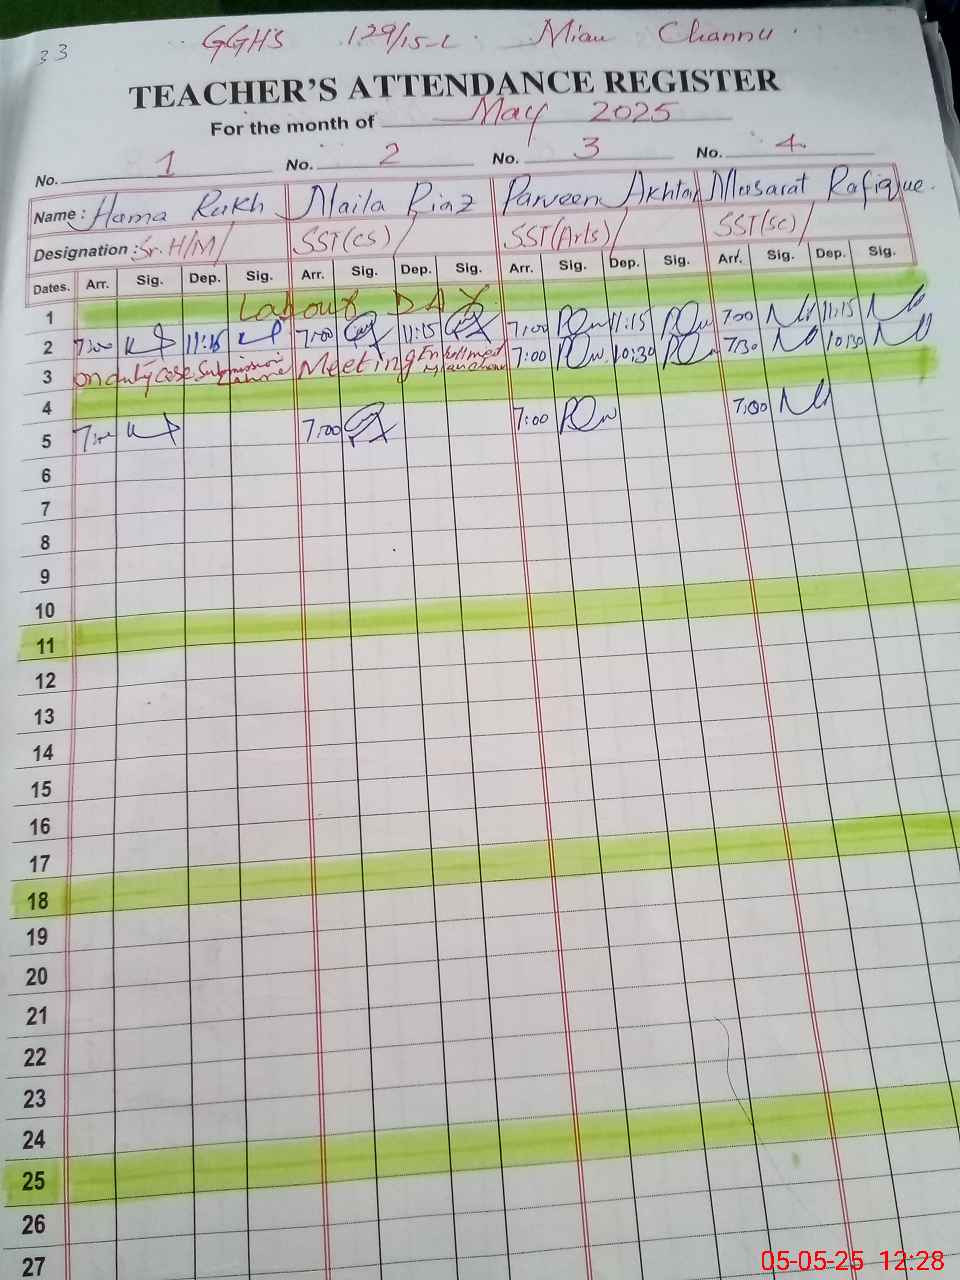 33
GGHS 129/15-L. Mian Channu.
TEACHER'S ATTENDANCE REGISTER
For the month of May 2025
No. 1 No. 2 No. 3 No. 4
Name: Huma Rukh Naila Riaz Parveen Akhtar Musarat Rafique.
Designation: Sr.H/M/ SST(CS)/ SST(Arts)/ SST(Sc)/
Dates. Arr. Sig. Dep. Sig. Arr. Sig. Dep. Sig. Arr. Sig. Dep. Sig. Arr. Sig. Dep. Sig.
1 Labour DAY
2 7:00 11:15 7:00 11:15 7:00 11:15 7:00 11:15
3 on duty case Submission Lahore Meeting Enrollment 7:00 10:30 7:30 10:30
4
5 7:00 7:00 7:00 7:00
6
7
8
9
10
11
12
13
14
15
16
17
18
19
20
21
22
23
24
25
26
27
05-05-25 12:28